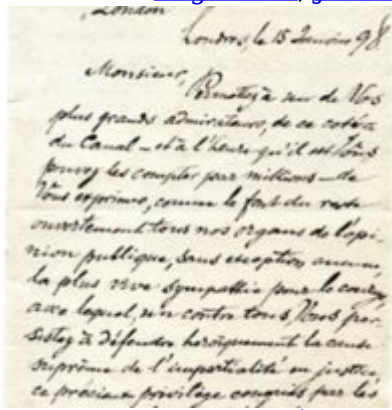 London
Londres, le 15 Janvier 98
Monsieur,
Permettez à un de Vos
plus grands admirateurs, de ce côté
du Canal — et à l'heure qu'il est Vous
pouvez les compter par millions — de
Vous exprimer, comme le font du reste
ouvertement tous nos organes de l'opi-
nion publique, sans exception aucune
la plus vive sympathie pour le courage
avec lequel, un contre tous, Vous per-
sistez à défendre héroïquement la cause
suprême de l'impartialité en justice
ce précieux privilège conquis par les